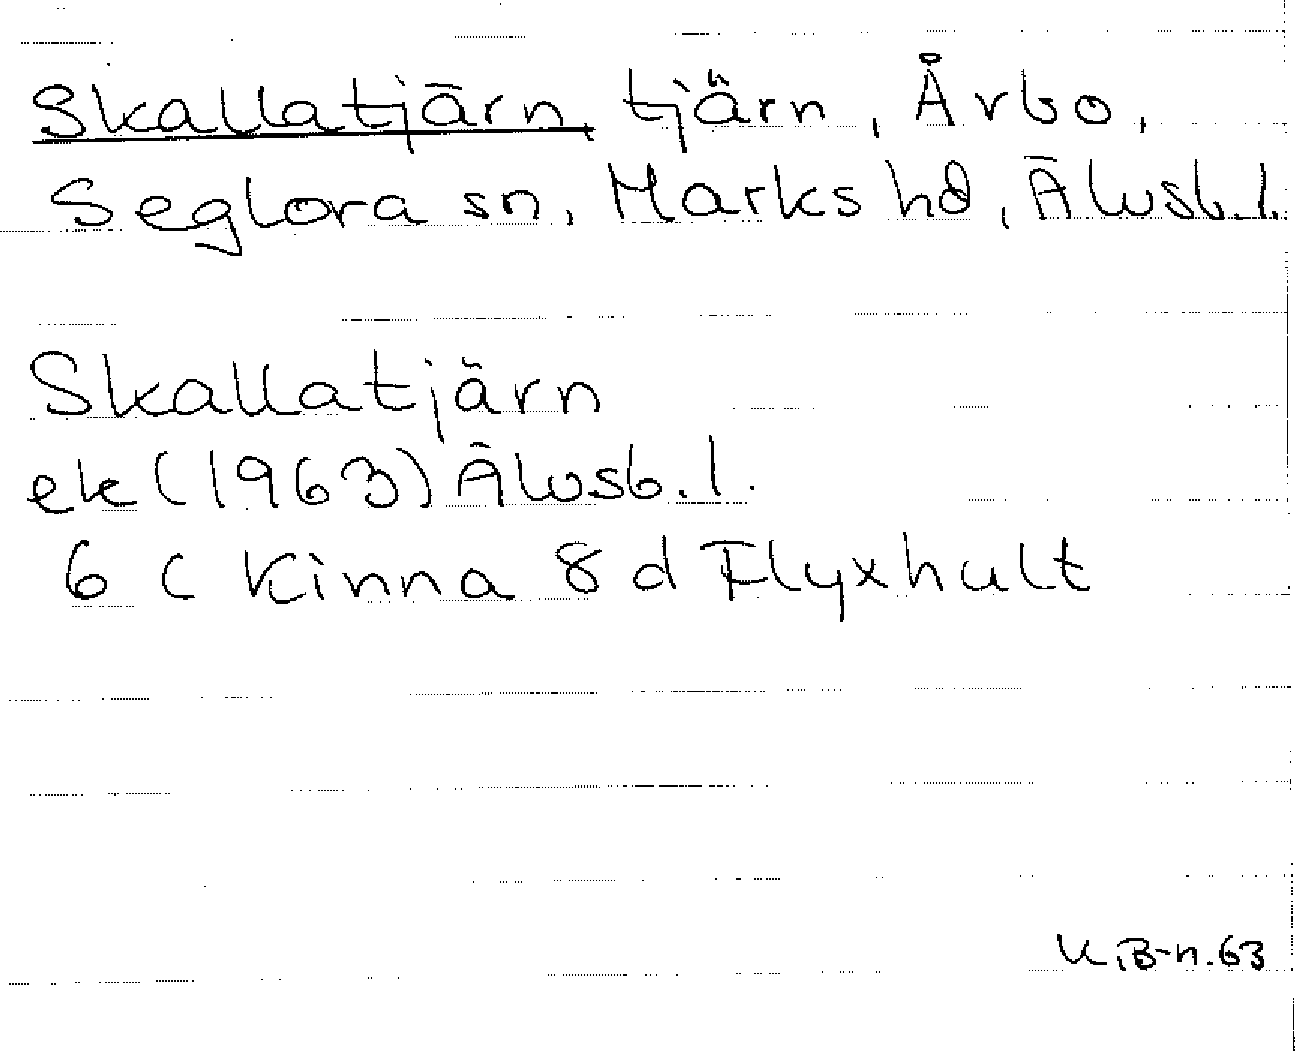 Skallatjärn, tjärn, Årbo,
Seglora sn, Marks hd, Älvsb.l.
Skallatjärn
ek (1963) Älvsb.l.
6 C Kinna 8 d Flyxhult
K.B-n.63